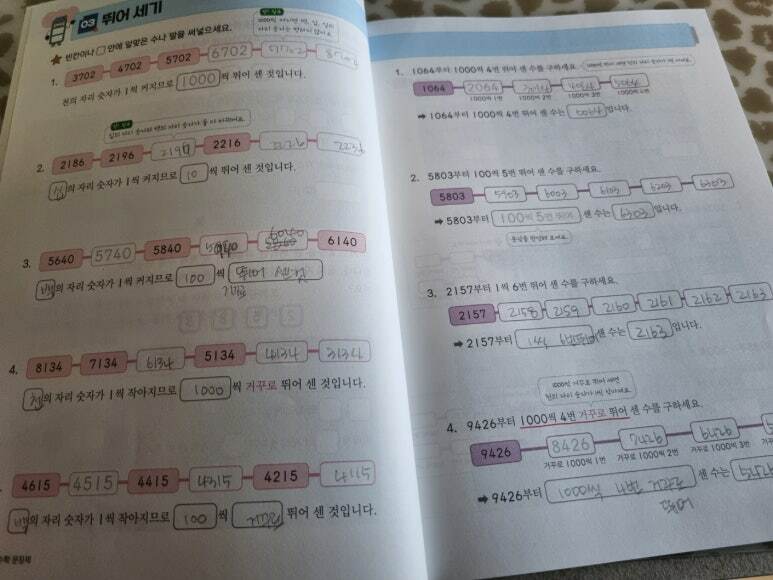 03 뛰어 세기
빈칸이나 □ 안에 알맞은 수나 말을 써넣으세요.
1. 3702 4702 5702 6702
천의 자리 숫자가 1씩 커지므로 1000 씩 뛰어 센 것입니다.
2. 2186 2196 2216 2226
십의 자리 숫자가 1씩 커지므로 10 씩 뛰어 센 것입니다.
3. 5640 5740 5840 6040 6140
백의 자리 숫자가 1씩 커지므로 100 씩 뛰어 센 것
4. 8134 7134 6134 5134 4134 3134
천의 자리 숫자가 1씩 작아지므로 1000 씩 거꾸로 뛰어 센 것입니다.
4615 4515 4415 4315 4215 4115
백의 자리 숫자가 1씩 작아지므로 100 씩 거꾸로 뛰어 센 것입니다.
1. 1064부터 1000씩 4번 뛰어 센 수를 구하세요.
1064 2064 3064 4064 5064
1000씩 1번 1000씩 2번 1000씩 3번 1000씩 4번
➡ 1064부터 1000씩 4번 뛰어 센 수는 5064 입니다.
2. 5803부터 100씩 5번 뛰어 센 수를 구하세요.
5803 5903 6003 6103 6203 6303
➡ 5803부터 100씩 5번 뛰어 센 수는 6303 입니다.
3. 2157부터 1씩 6번 뛰어 센 수를 구하세요.
2157 2158 2159 2160 2161 2162 2163
➡ 2157부터 1씩 6번뛰어 센 수는 2163 입니다.
1000씩 거꾸로 뛰어 세면
4. 9426부터 1000씩 4번 거꾸로 뛰어 센 수를 구하세요.
9426 8426 7426 6426
거꾸로 1000씩 1번 거꾸로 1000씩 2번 거꾸로 1000씩 3번
➡ 9426부터 1000씩 4번 거꾸로 뛰어 센 수는